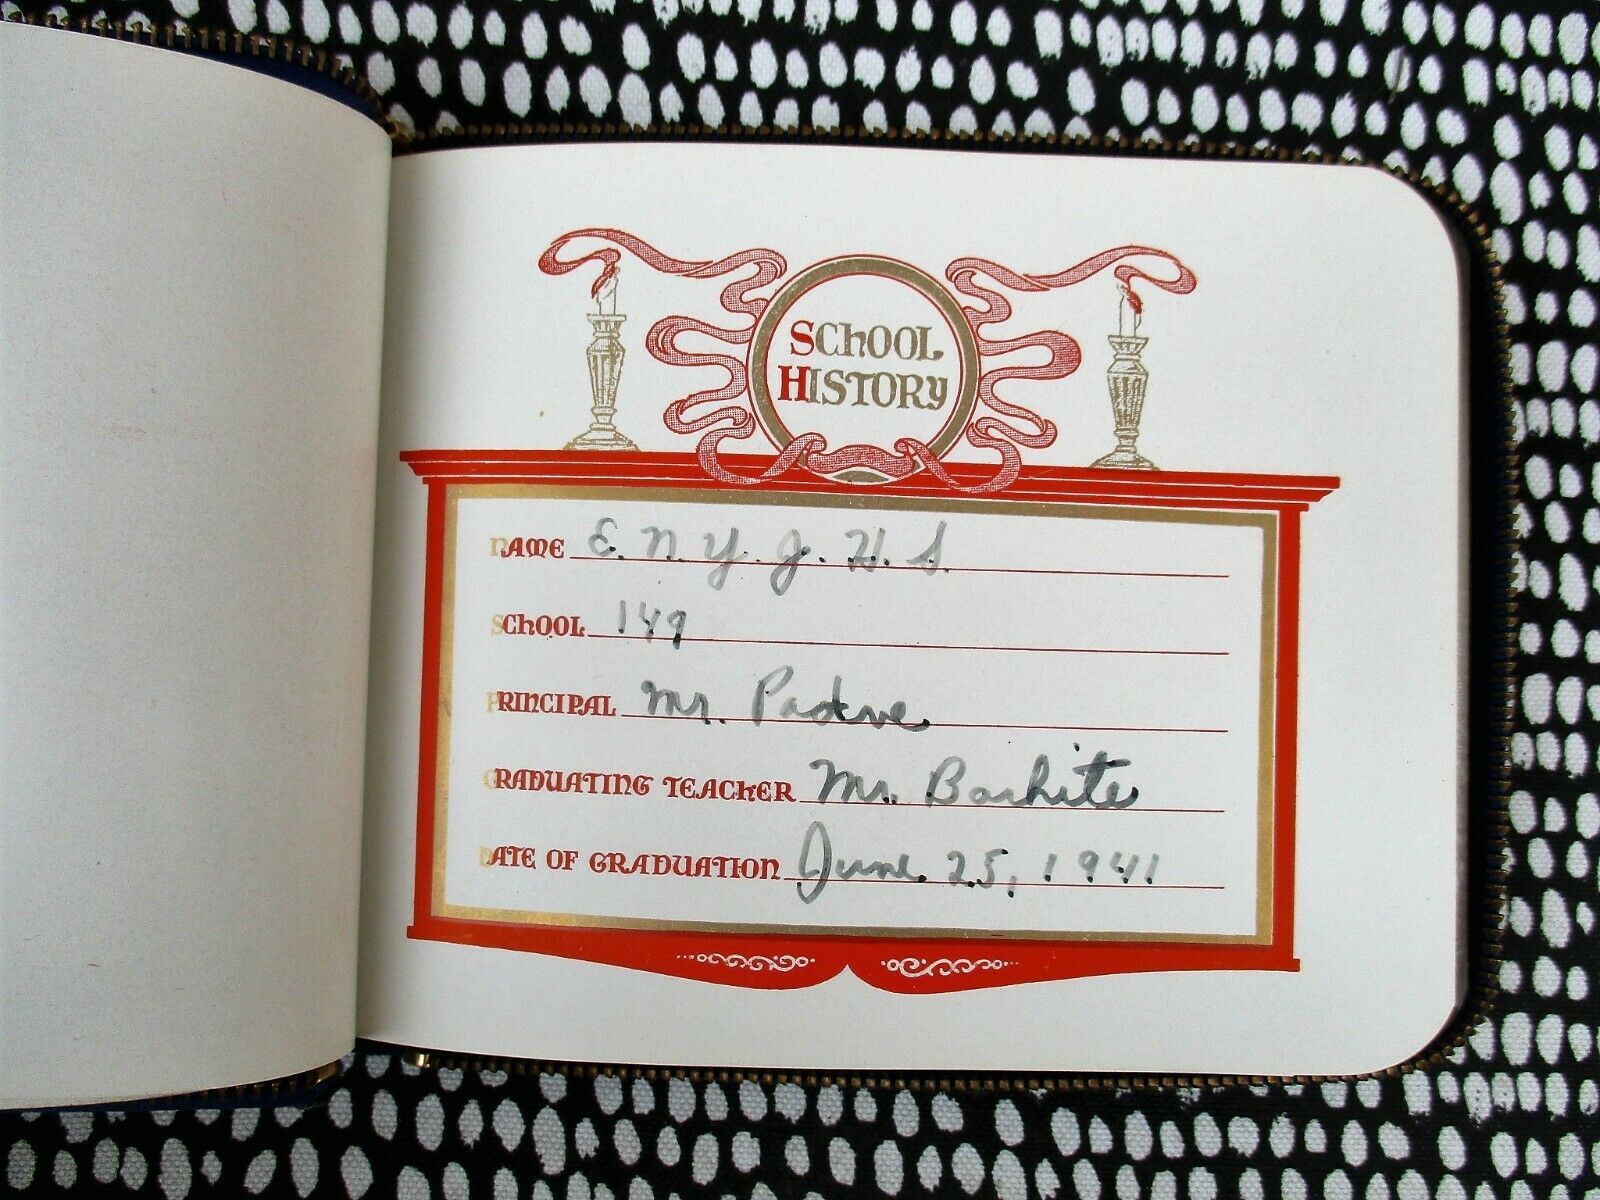 SCHOOL
HISTORY
NAME E. N. Y. J. H. S.
SCHOOL 149
PRINCIPAL Mr. Padwe
GRADUATING TEACHER Mr. Barhite
DATE OF GRADUATION June 25, 1941